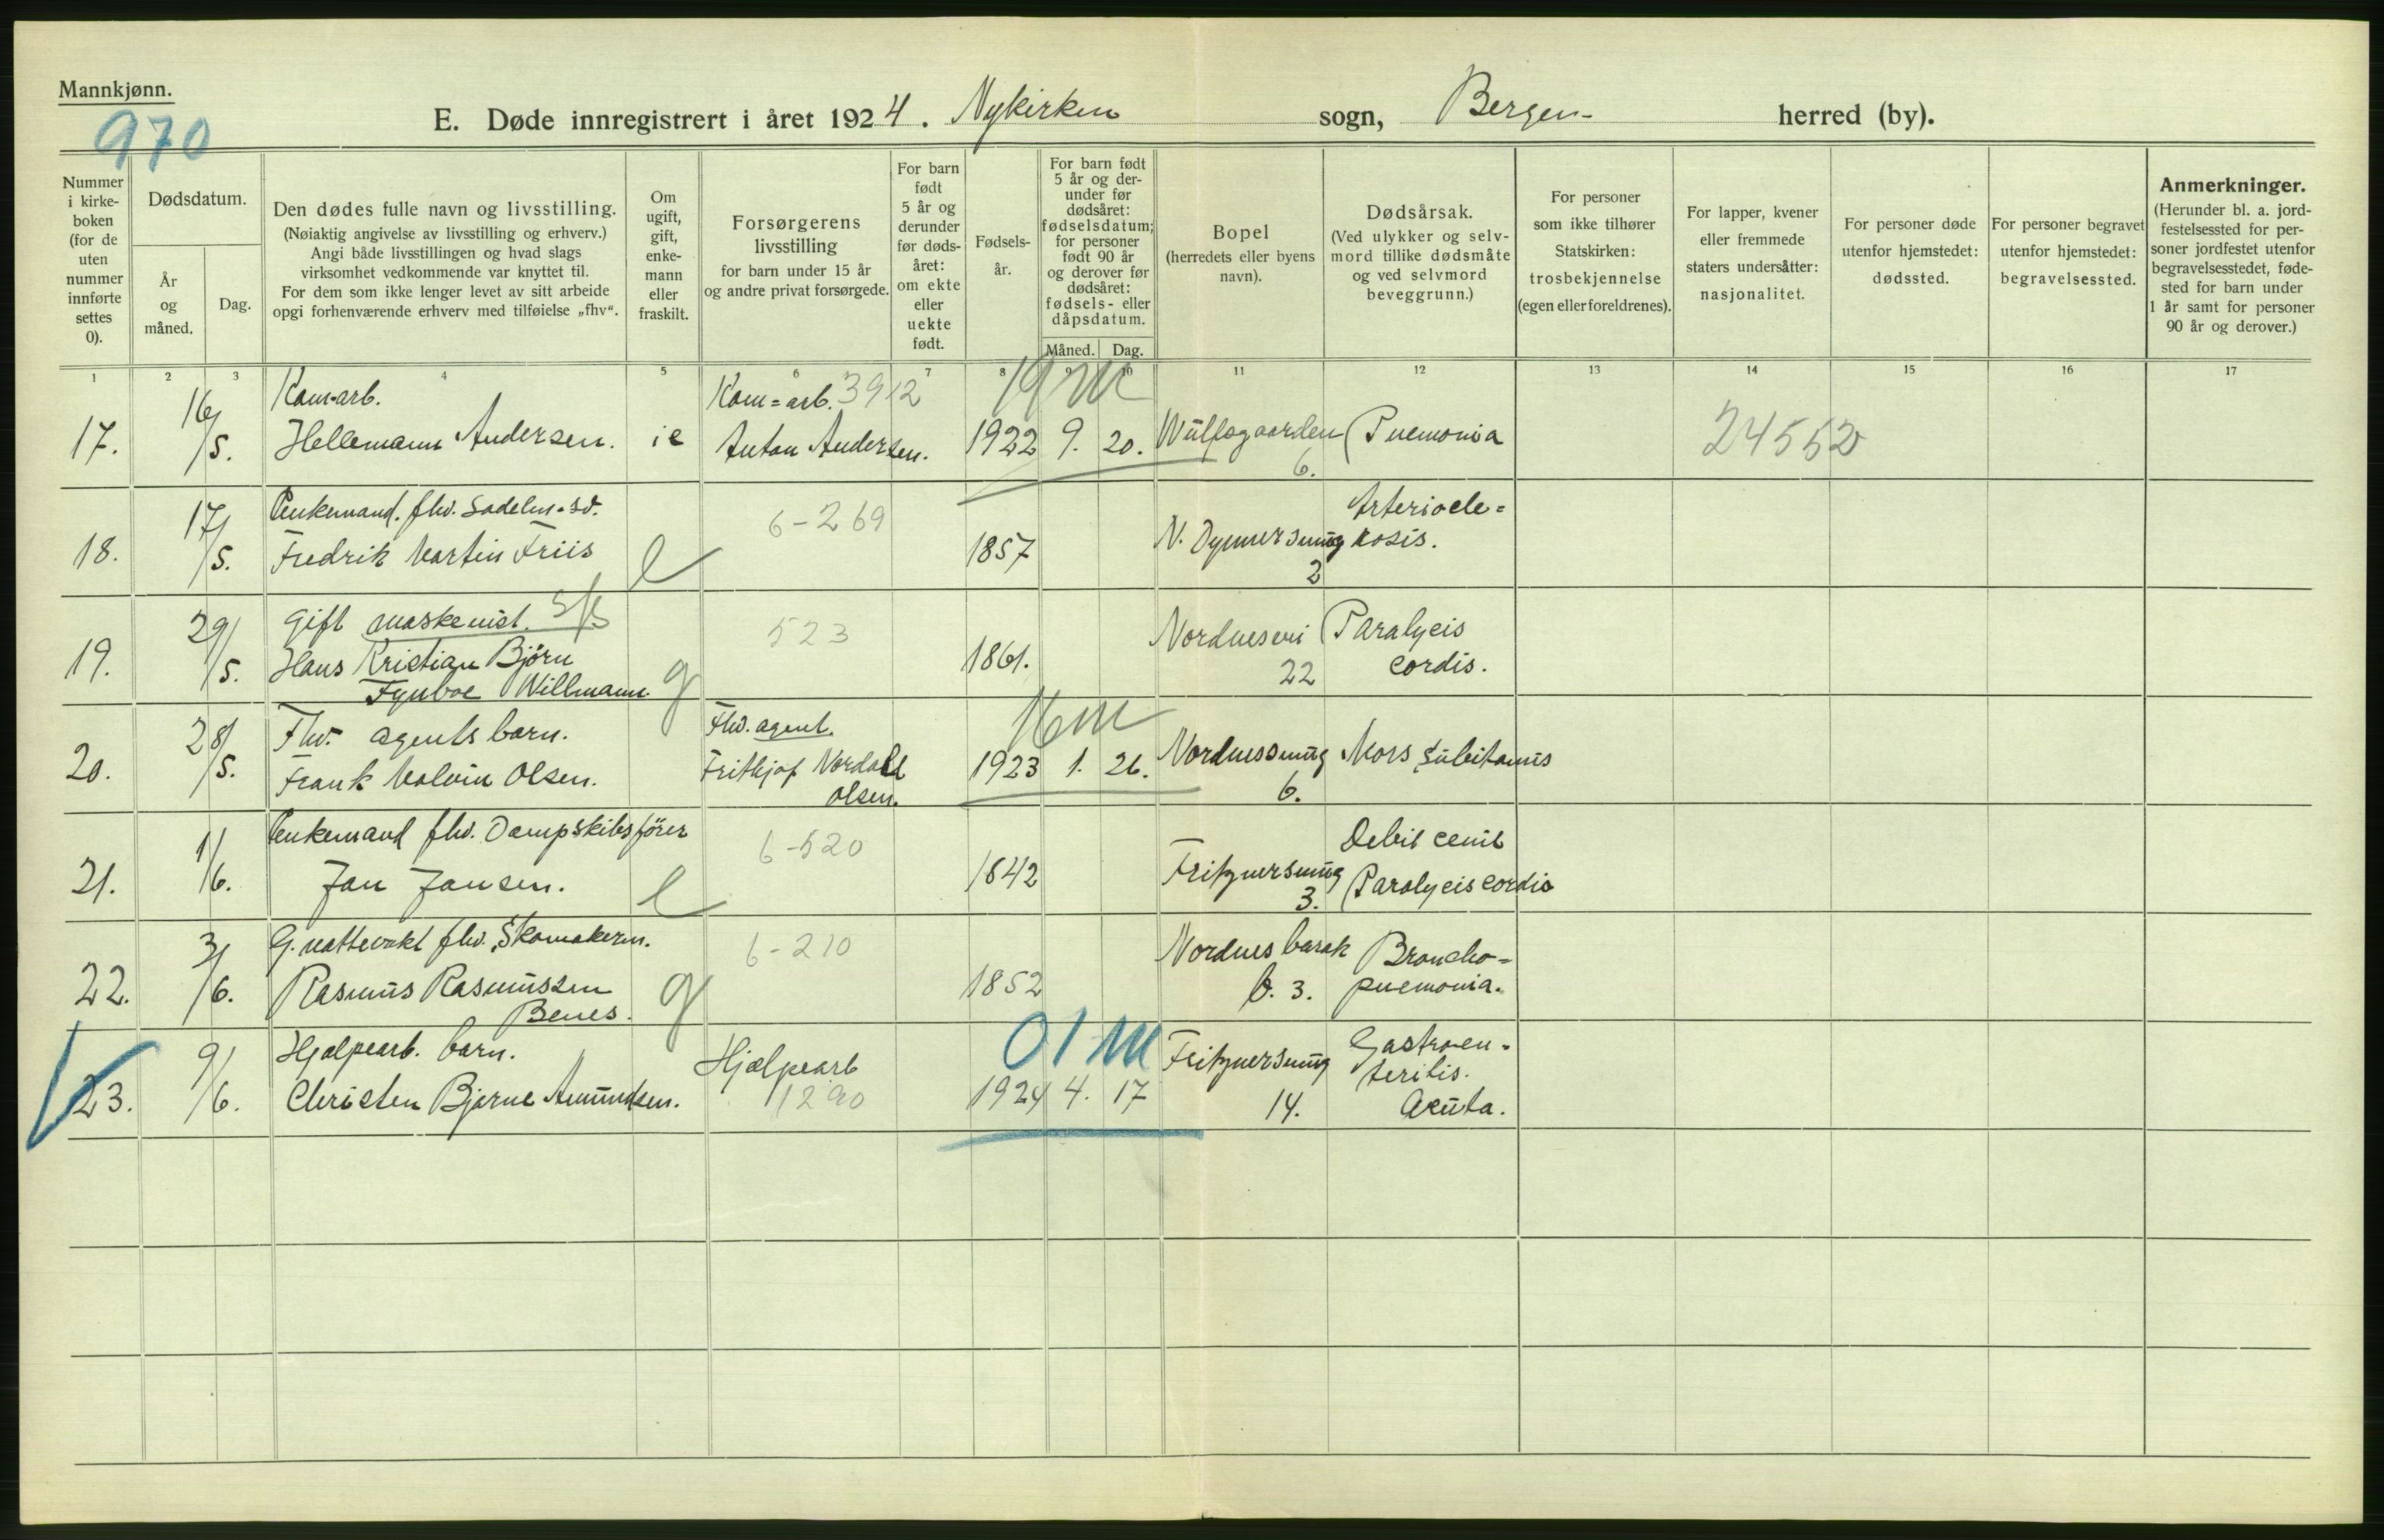 Mannkjønn.
970
E. Døde innregistrert i året 1924. Nykirken sogn, Bergen herred (by).
Nummer i kirkeboken (for de uten nummer innførte settes 0).
Dødsdatum.
År og måned.
Dag.
Den dødes fulle navn og livsstilling.
(Nøiaktig angivelse av livsstilling og erhverv.)
Angi både livsstillingen og hvad slags
virksomhet vedkommende var knyttet til.
For dem som ikke lenger levet av sitt arbeide
opgi forhenværende erhverv med tilføielse „fhv“.
Om ugift, gift, enkemann eller fraskilt.
Forsørgerens
livsstilling
for barn under 15 år
og andre privat forsørgede.
For barn født 5 år og derunder før dødsåret: om ekte eller uekte født.
Fødselsår.
For barn født 5 år og derunder før dødsåret: fødselsdatum; for personer født 90 år og derover før dødsåret: fødsels- eller dåpsdatum.
Måned. Dag.
Bopel
(herredets eller byens
navn).
Dødsårsak.
(Ved ulykker og selvmord tillike dødsmåte
og ved selvmord
beveggrunn.)
For personer
som ikke tilhører
Statskirken:
trosbekjennelse
(egen eller foreldrenes).
For lapper, kvener
eller fremmede
staters undersåtter:
nasjonalitet.
For personer døde
utenfor hjemstedet:
dødssted.
For personer begravet
utenfor hjemstedet:
begravelsessted.
Anmerkninger.
(Herunder bl. a. jordfestelsessted for personer jordfestet utenfor
begravelsesstedet, fødested for barn under
1 år samt for personer
90 år og derover.)
1 2 3 4 5 6 7 8 9 10 11 12 13 14 15 16 17
17. 16/5. Kom-arb. Hellemann Andersen. ie Kom=arb. 3912 Anton Andersen. 19 m 1922 9. 20. Wulfsgaarden 6. Pnemonia 24552
18. 17/5. Enkemand. fhv. Sadelm. sv. Fredrik Martin Friis e 6-269 1857 N. Dynnersmug 2 Arterioclerosis.
19. 29/5. Gift maskenist. Hans Kristian Björn Fynboe Willmann g 523 1861. Nordnesvei 22 Paralycis cordis.
20. 28/5. Fhv. agents barn. Frank Malvin Olsen. Fhv. agent. Frithjof Nordahl Olsen. 16 m 1923 1. 26. Nordnessmug 6. Mors Subitanus
21. 1/6. Enkemand fhv. Dampskibsfører Jan Jansen. e 6-520 1842 Fritznersmug 3. Debil cenil Paralycis cordis
22. 3/6. G. nattevakt fhv. Skomakerm. Rasmus Rasmussen Benes. g 6-210 1852 Nordnes barak b. 3. Broncho=pnemonia.
23. 9/6. Hjælpearb. barn. Christen Bjarne Amundsen. Hjælpearb 1290 01 m 1924 4. 17 Fritznersmug 14. Gastroenteritis. Acuta.